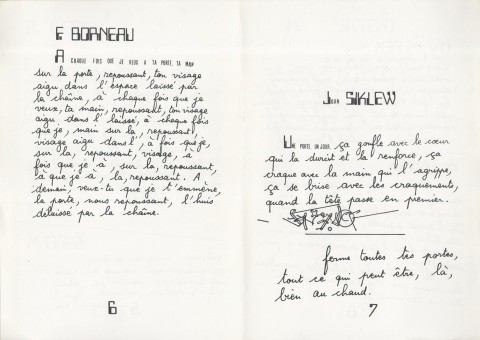 E BORNEAU
A CHAQUE FOIS QUE JE VEUX A TA PORTE, TA MAIN
sur la porte, repoussant, ton visage
aigu dans l'espace laissé par
la chaîne, à chaque fois que je
veux, ta main, repoussant, ton visage
aigu dans l'laissé, à chaque fois
que je, main sur la, repoussant,
visage aigu dans l', à fois que je,
sur la, repoussant, visage, à
fois que je à, sur la, repoussant,
là que je à, la, repoussant. A
demain, veux-tu que je t'emmène,
la porte, nous repoussant, l'huis
délaissé par la chaîne.
6
John SIKLEW
UNE PORTE, UN JOUR, ça gonfle avec le cœur
qui la durcit et la renforce, ça
craque avec la main qui l'agrippe,
ça se brise avec les craquements,
quand la tête passe en premier.
ferme toutes tes portes,
tout ce qui peut être, là,
bien au chaud.
7